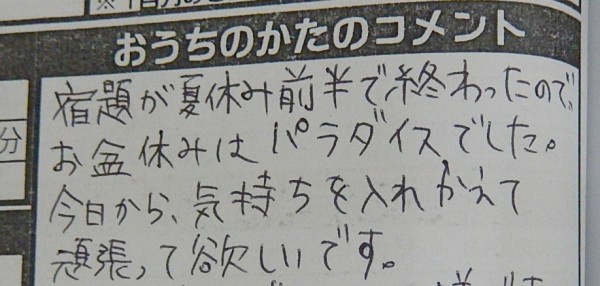 おうちのかたのコメント
宿題が夏休み前半で終わったので、
お盆休みはパラダイスでした。
分
今日から、気持ちを入れかえて
頑張って欲しいです。